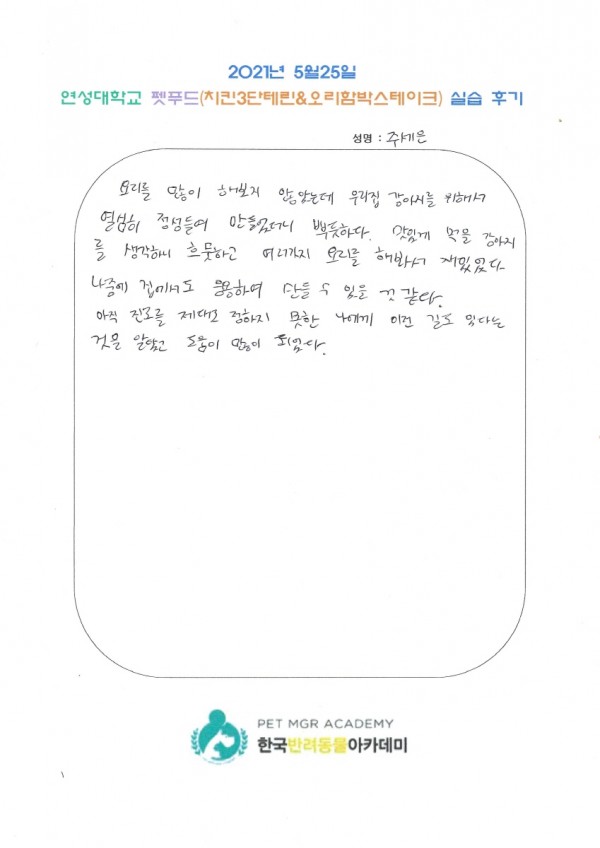 2021년 5월25일
연성대학교 펫푸드(치킨3단테린&오리함박스테이크) 실습 후기
성명 : 주세은
요리를 많이 해보지 않았는데 우리집 강아지를 위해서
열심히 정성들여 만들었더니 뿌듯하다. 맛있게 먹을 강아지
를 생각하니 흐뭇하고 여러가지 요리를 해봐서 재밌었다.
나중에 집에서도 응용하여 만들 수 있을 것 같다.
아직 진로를 제대로 정하지 못한 나에게 이런 길도 있다는
것을 알았고 도움이 많이 되었다.
PET MGR ACADEMY
한국반려동물아카데미